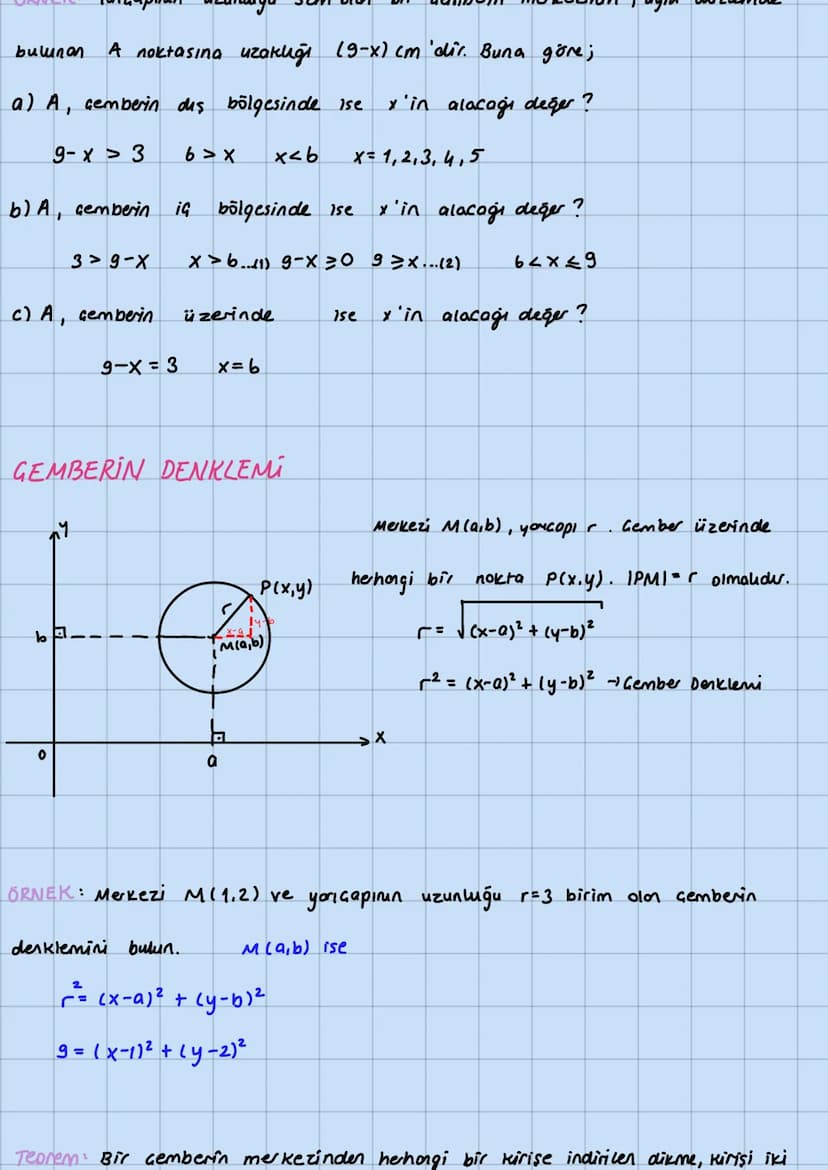 bulunan A noktasına uzaklığı (9-x) cm 'dir. Buna göre;
a) A, çemberin dış bölgesinde ise x'in alacağı değer?
9-x > 3 6 > x x<6 x= 1,2,3,4,5
b) A, çemberin iç bölgesinde ise x'in alacağı değer?
3 > 9-x x > 6...(1) 9-x ⩾ 0 9 ⩾ x...(2) 6 < x ⩽ 9
c) A, çemberin üzerinde ise x'in alacağı değer?
9-x = 3 x=6
ÇEMBERİN DENKLEMİ
Merkezi M(a,b), yarıçapı r. Çember üzerinde
herhangi bir nokta P(x,y). |PM| = r olmalıdır.
r = √(x-a)² + (y-b)²
r² = (x-a)² + (y-b)² → Çember Denklemi
y
P(x,y)
r
y-b
x-a
b
M(a,b)
x
0
a
ÖRNEK: Merkezi M(1,2) ve yarıçapının uzunluğu r=3 birim olan çemberin
denklemini bulun. M(a,b) ise
r² = (x-a)² + (y-b)²
9 = (x-1)² + (y-2)²
Teorem: Bir çemberin merkezinden herhangi bir kirişe indirilen dikme, kirişi iki